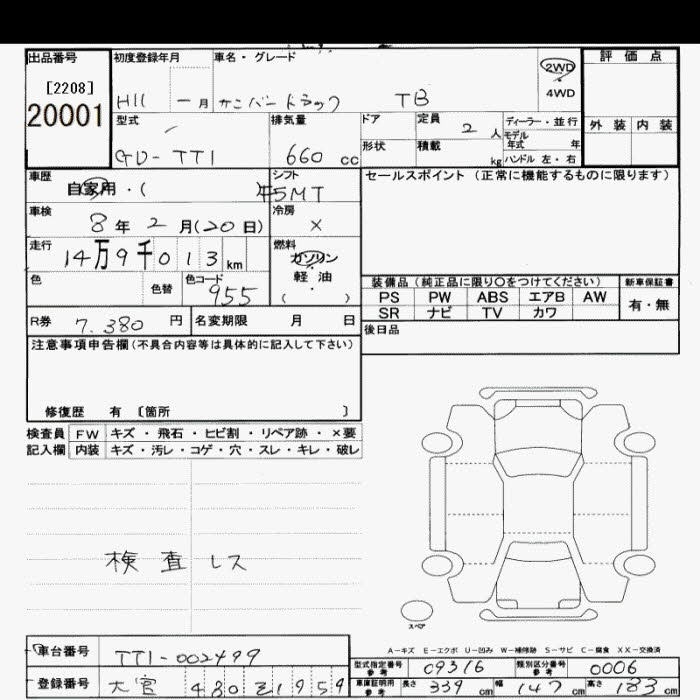 出品番号 初度登録年月 車名・グレード 評価点
[2208] 2WD
20001 H11 一月 サンバートラック TB 4WD
型式 排気量 ドア 定員 2人 ディーラー・並行 外装 内装
モデル年式 年
GD-TT1 660cc 形状 積載 kg ハンドル 左・右
車歴 自家用・( シフト 5MT セールスポイント(正常に機能するものに限ります)
車検 8年2月(20日) 冷房 ×
走行 14万9千013km 燃料 ガソリン
軽油
色 色替 色コード 955 ( )
装備品(純正品に限り〇をつけてください) 新車保証書
PS PW ABS エアB AW 有・無
SR ナビ TV カワ
R券 7.380円 名変期限 月 日 後日品
注意事項申告欄(不具合内容等は具体的に記入して下さい)
修復歴 有 〔箇所 〕
検査員 FW キズ・飛石・ヒビ割・リペア跡・×要
記入欄 内装 キズ・汚レ・コゲ・穴・スレ・キレ・破レ
検査レス
スペア
A-キズ E-エクボ U-凹み W-補修跡 S-サビ C-腐食 XX-交換済
車台番号 TT1-002499
型式指定番号 参考 09316 類別区分番号 参考 0006
登録番号 480 1959
車庫証明用 参考 長さ 339cm 幅 147cm 高さ 183cm